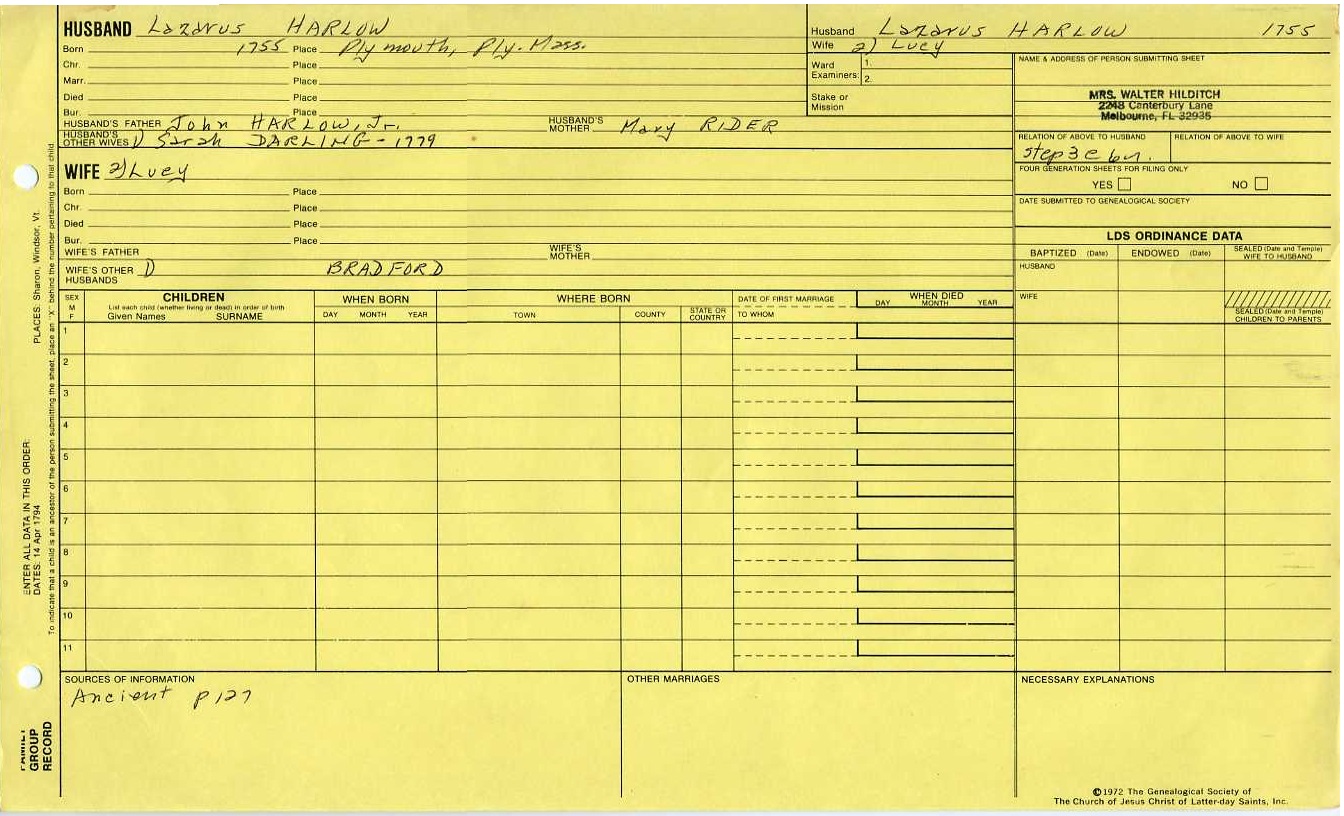 HUSBAND Lazarus HARLOW
Born 1755 Place Plymouth, Ply. Mass.
Chr. Place
Marr. Place
Died Place
Bur. Place
HUSBAND'S FATHER John HARLOW, Jr. HUSBAND'S MOTHER Mary RIDER
HUSBAND'S OTHER WIVES 1) Sarah DARLING - 1779
Husband Lazarus HARLOW 1755
Wife 2) Lucy
Ward Examiners: 1. 2.
Stake or Mission
NAME & ADDRESS OF PERSON SUBMITTING SHEET
MRS. WALTER HILDITCH
2248 Canterbury Lane
Melbourne, FL 32935
RELATION OF ABOVE TO HUSBAND RELATION OF ABOVE TO WIFE
step 3 c 6 r.
FOUR GENERATION SHEETS FOR FILING ONLY
YES NO
DATE SUBMITTED TO GENEALOGICAL SOCIETY
WIFE 2) Lucy
Born Place
Chr. Place
Died Place
Bur. Place
WIFE'S FATHER WIFE'S MOTHER
WIFE'S OTHER HUSBANDS 1) BRADFORD
LDS ORDINANCE DATA
BAPTIZED (Date) ENDOWED (Date) SEALED (Date and Temple) WIFE TO HUSBAND
HUSBAND
WIFE
SEALED (Date and Temple) CHILDREN TO PARENTS
SEX M F
CHILDREN
List each child (whether living or dead) in order of birth
Given Names SURNAME
WHEN BORN
DAY MONTH YEAR
WHERE BORN
TOWN COUNTY STATE OR COUNTRY
DATE OF FIRST MARRIAGE
TO WHOM
WHEN DIED
DAY MONTH YEAR
1
2
3
4
5
6
7
8
9
10
11
SOURCES OF INFORMATION
Ancient p 127
OTHER MARRIAGES
NECESSARY EXPLANATIONS
©1972 The Genealogical Society of
The Church of Jesus Christ of Latter-day Saints, Inc.
FAMILY GROUP RECORD
ENTER ALL DATA IN THIS ORDER:
DATES: 14 Apr 1794
PLACES: Sharon, Windsor, Vt.
To indicate that a child is an ancestor of the person submitting the sheet, place an "X" behind the number pertaining to that child.